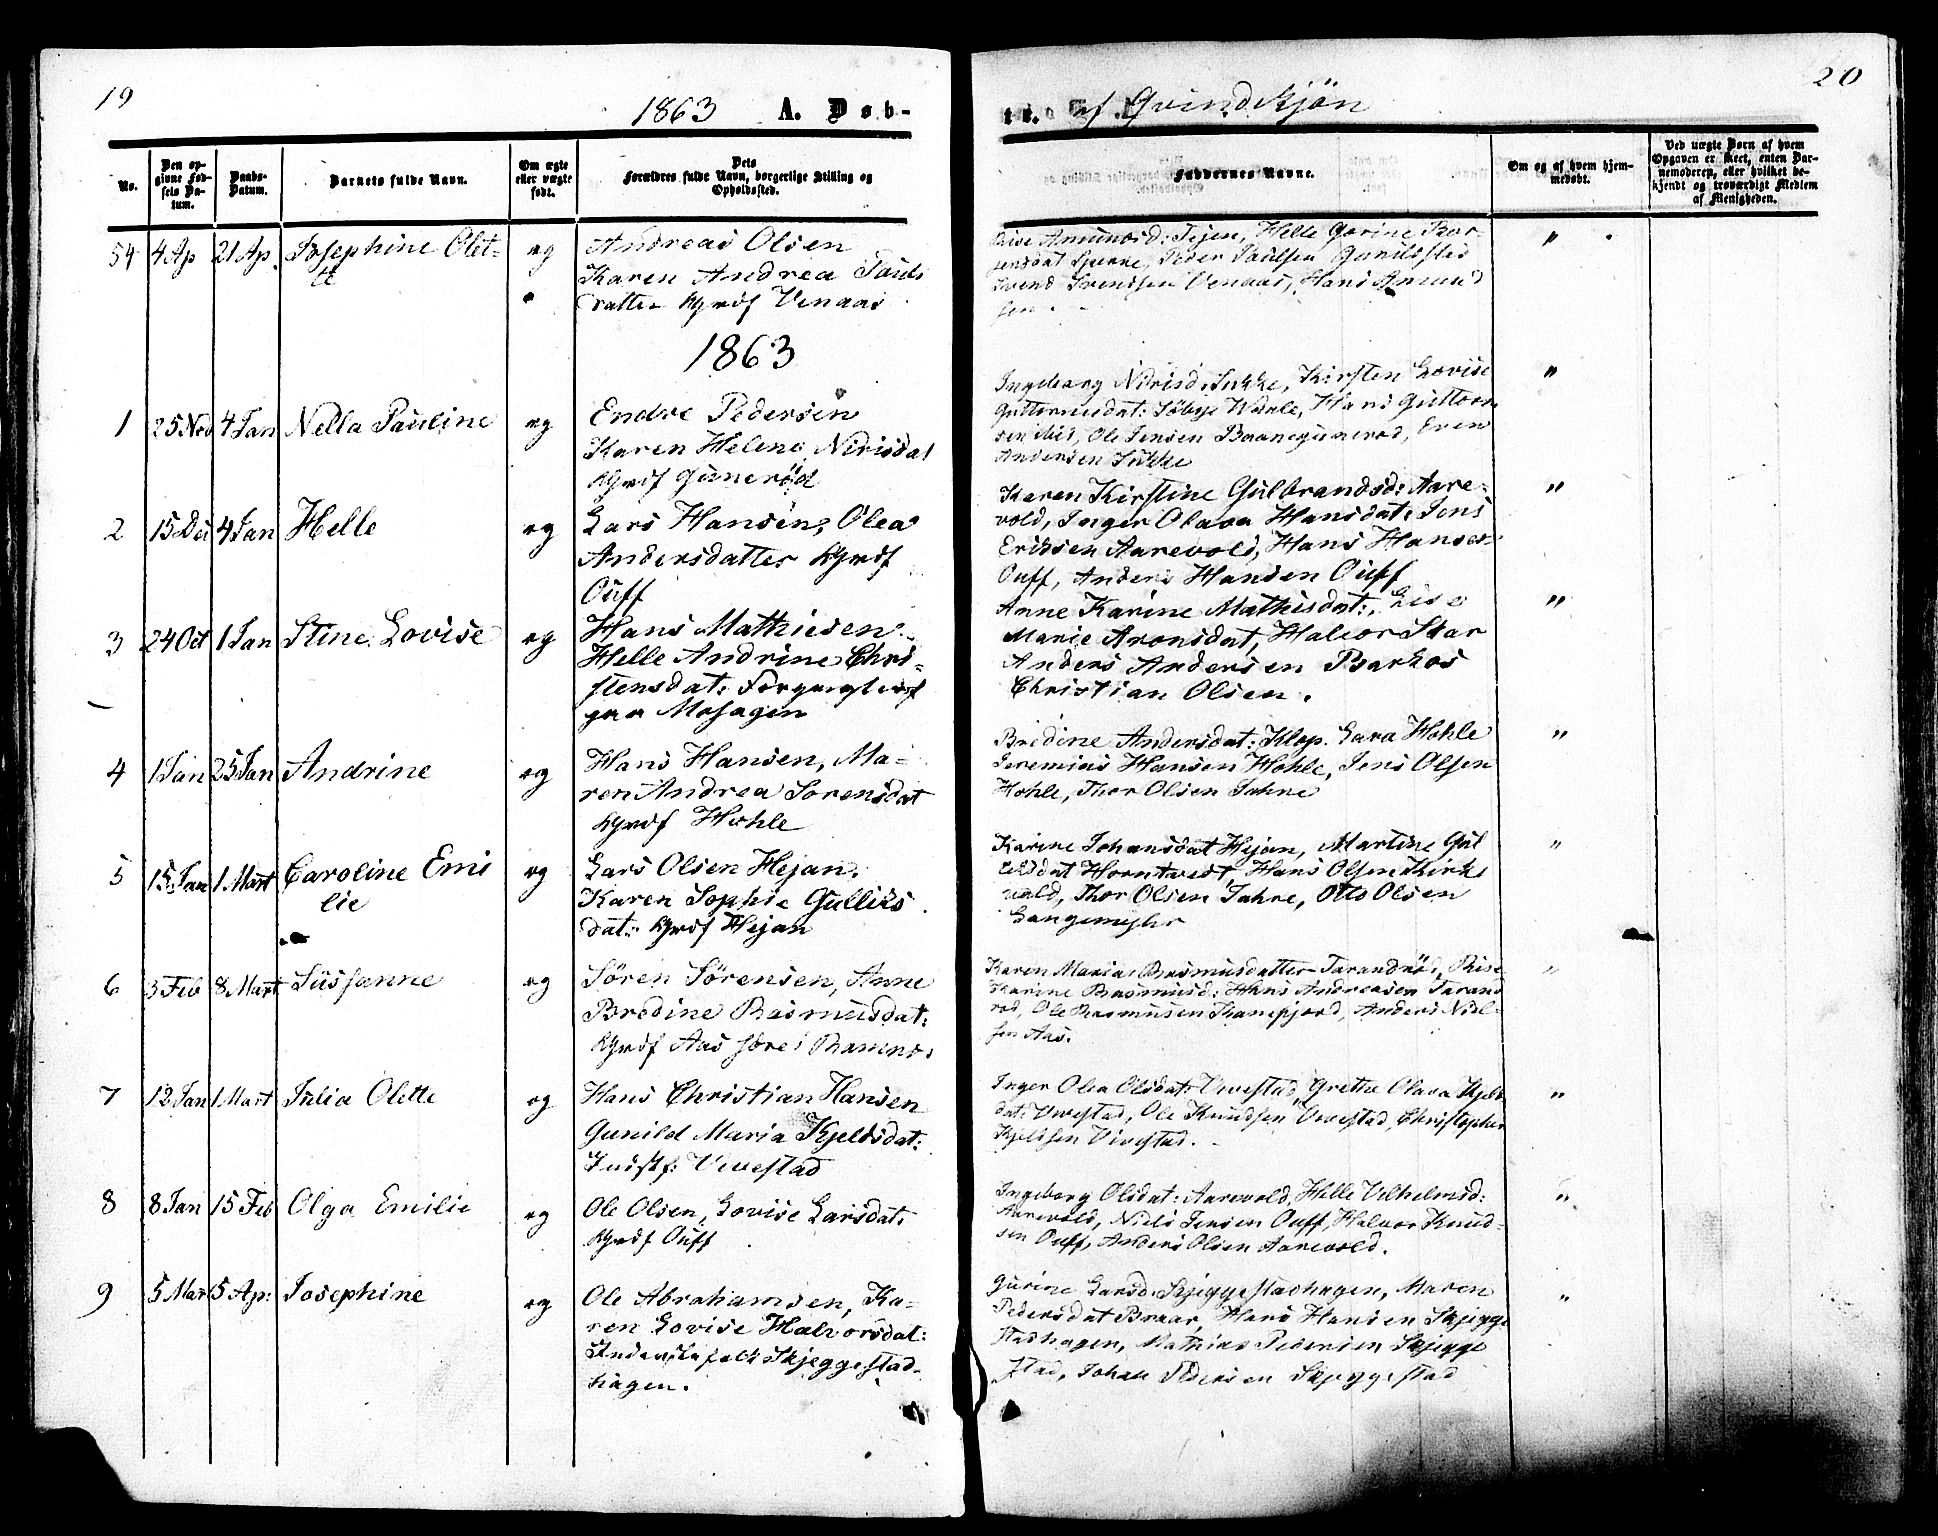 19
1863 A. Døb-
No.
Den op-
givne Fød-
sels Da-
tum.
Daabs-
Datum.
Barnets fulde Navn.
Om ægte
eller uægte
født.
Dets
Forældres fulde Navn, borgerlige Stilling og
Opholdssted.
54 4 Ap 21 Ap. Josephine Olet-
te
eg
Andreas Olsen
Karen Andrea Pauls
datter Venaas
1863
1 25 Nov 4 Jan Nella Pauline eg
Endre Pedersen
Karen Helene Nirisdat
Gunerød
2 15 Des 4 Jan Helle eg
Lars Hansen, Olea
Andersdatter
Ouff
3 24 Oct 1 Jan Stine Lovise eg
Hans Mathiesen
Helle Andrine Chri-
stensdat:
paa Moshagen
4 1 Jan 25 Jan Andrine eg
Hans Hansen, Ma-
ren Andrea Sorensdat
Hohle
5 15 Jan 1 Mart Caroline Emi
lie
eg
Lars Olsen Hejan,
Karen Sophie Gulliks
dat: Hejan
6 3 Feb 8 Mart Sussanne eg
Søren Sørensen, Anne
Bredine Rasmusdat:
Aas søre i Ramnes
7 12 Jan 1 Mart Julia Olette eg
Hans Christian Hansen
Gunild Maria Kjeldsdat:
Indstf: Vivestad
8 8 Jan 15 Feb Olga Emilie eg
Ole Olsen, Lovise Larsdat:
Ouff
9 5 Mar 5 Ap: Josephine eg
Ole Abrahamsen, Ka-
ren Lovise Halvorsdat:
Skjeggestad-
hagen.
20
te. af Qvindekjön
Faddernes Navne.
Om og af hvem hjem-
medøbt.
Ved uægte Børn af hvem
Opgaven er skeet, enten Bar-
nemoderen, eller hvilket be-
kjendt og troværdigt Medlem
af Menigheden.
Amundsd: Tejen, Helle Gorine Tor-
Peder Paulsen Gunildstad "
Svend Svendsen Venaas, Hans Amund
sen.
Ingeborg Nirisd: Sukke, Kirsten Lovise "
Guttormsdat: Hans Guttorm
sen Ole Jensen Even
Andersen Sukke
Karen Kirstine Gulbrandsd: Aare- "
vold, Inger Olava Hansdat: Jens
Eriksen Aarevold, Hans Hansen
Ouff, Anders Hansen Ouff
Anne Karine Mathisdat:, Lise "
Marie Aronsdat, Halvor Skar
Anders Andersen Barkos
Christian Olsen.
Bredine Andersdat: Klop. Lava Hohle "
Jeremias Hansen Hohle, Jens Olsen
Hohle, Thor Olsen Jahre
Karine Johansdat Hejan, Martine Gul "
Horntvedt, Hans Olsen Kirke
vold, Thor Olsen Jahre, Otto Olsen
Langemyhr
Karen Maria Rasmusdatter Tarandrød, "
Karine Rasmusd: Hans Andreasen Tarand
rød, Ole Rasmusen Kanefjord, Anders Niel-
sen Aas.
Inger Olea Olsdat: Vivestad, Grethe Olava Kjeld "
dat: Vivestad, Ole Knudsen Vivestad, Christopher
Kjeldsen Vivestad.
Ingeborg Olsdat: Aarevold, Helle Vilhelmsd: "
Aarevold, Niels Jensen Ouff, Halvor Knud-
sen Ouff, Anders Olsen Aarevold.
Gurine Larsd: Skjeggestadhagen, Maren "
Pedersdat Braar, Hans Hansen Skjegge
stadhagen, Mathias Pedersen Skjegge
stad, Johan Pedersen Skjeggestad